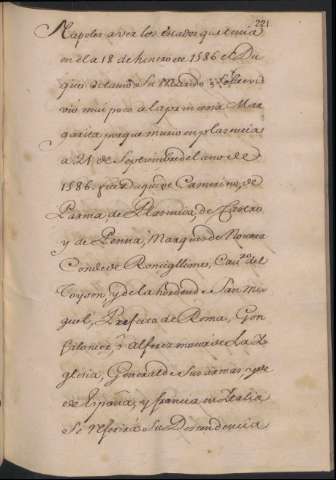 221
Napoles a ver los estados que tenia
en el a 18 de henero de 1586 el Du
que octavio su Marido
vio mui poco a la princesa Mar
garita, porque murio en plasencia
a 21 de Septiembre del ano de
1586. fue Duque de Camerino, de
Parma, de Plasencia, de Castro
y de Penna, Marques de Novara
Conde de Ronciglione, Cauº del
Toyson, y de la horden de San Mig
uel, Prefeto de Roma, Gon
falonier, ò Alferez maior de La Y
glesia, General de sus armas y
de España, y francia en Italia
Se referirà su Descendencia